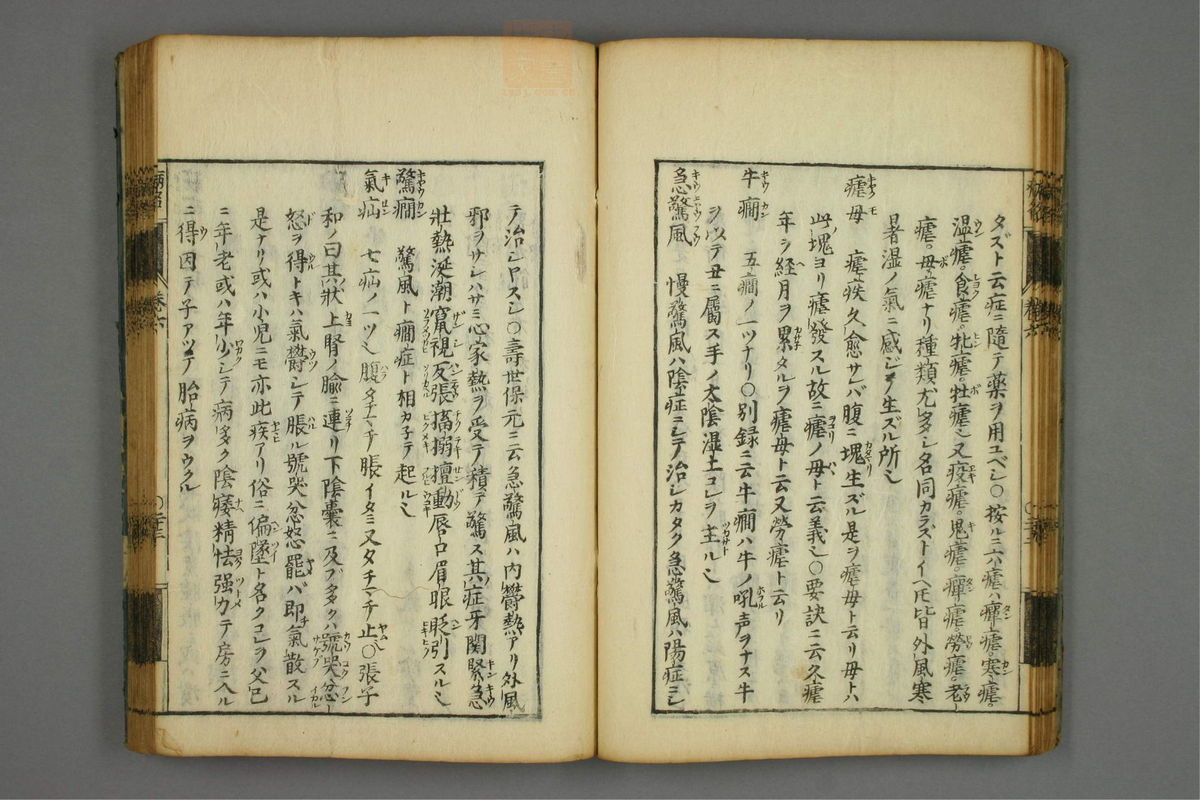 タズト云症ニ隨テ薬ヲ用ユベシ○按ルニ六瘧ハ癉瘧。寒瘧。
温瘧。食瘧。牝瘧。牡瘧也又疫瘧。鬼瘧。瘴瘧勞瘧。老
瘧。母瘧ナリ種類尤多シ名同カラズトイヘ𪜈皆外風寒
暑湿ノ氣ニ感ジテ生ズル所也
瘧母 瘧疾久愈サレバ腹ニ塊生ズル是ヲ瘧母ト云リ母トハ
此塊ヨリ瘧發スル故ニ瘧ノ母ト云義也○要訣ニ云久瘧
年ヲ経月ヲ累タルヲ瘧母ト云又勞瘧ト云リ
牛癇 五癇ノ一ツナリ○別録ニ云牛癇ハ牛ノ吼声ヲナス牛
ヲ以テ丑ニ屬ス手ノ太陰湿土コレヲ主ル也
急驚風 慢驚風ハ陰症ニシテ治シカタク急驚風ハ陽症ニシ
テ治シヤスシ○壽世保元ニ云急驚風ハ内欝熱アリ外風
邪ヲサシハサミ心家熱ヲ受テ積テ驚ス其症牙関緊急
壯熱涎潮竄視反張搐搦擅動唇口眉眼眨引スル也
驚癇 驚風ト癇症ト相カ子テ起ル也
氣疝 七疝ノ一ツ也腹タチマチ脹イタミ又タチマチ止ム○張子
和ノ曰其状上腎ノ兪ニ連リ下陰嚢ニ及ブ多クハ號哭忿
怒ヲ得トキハ氣欝シテ脹ル號哭忿怒罷バ即氣散スル
是ナリ或ハ小児ニモ亦此疾アリ俗ニ偏墜ト名クコレヲ父已
ニ年老或ハ年少シテ病多ク陰痿精怯强カテ房ニ入ル
ニ得因テ子アツテ胎病ヲウクル
病名
巻六